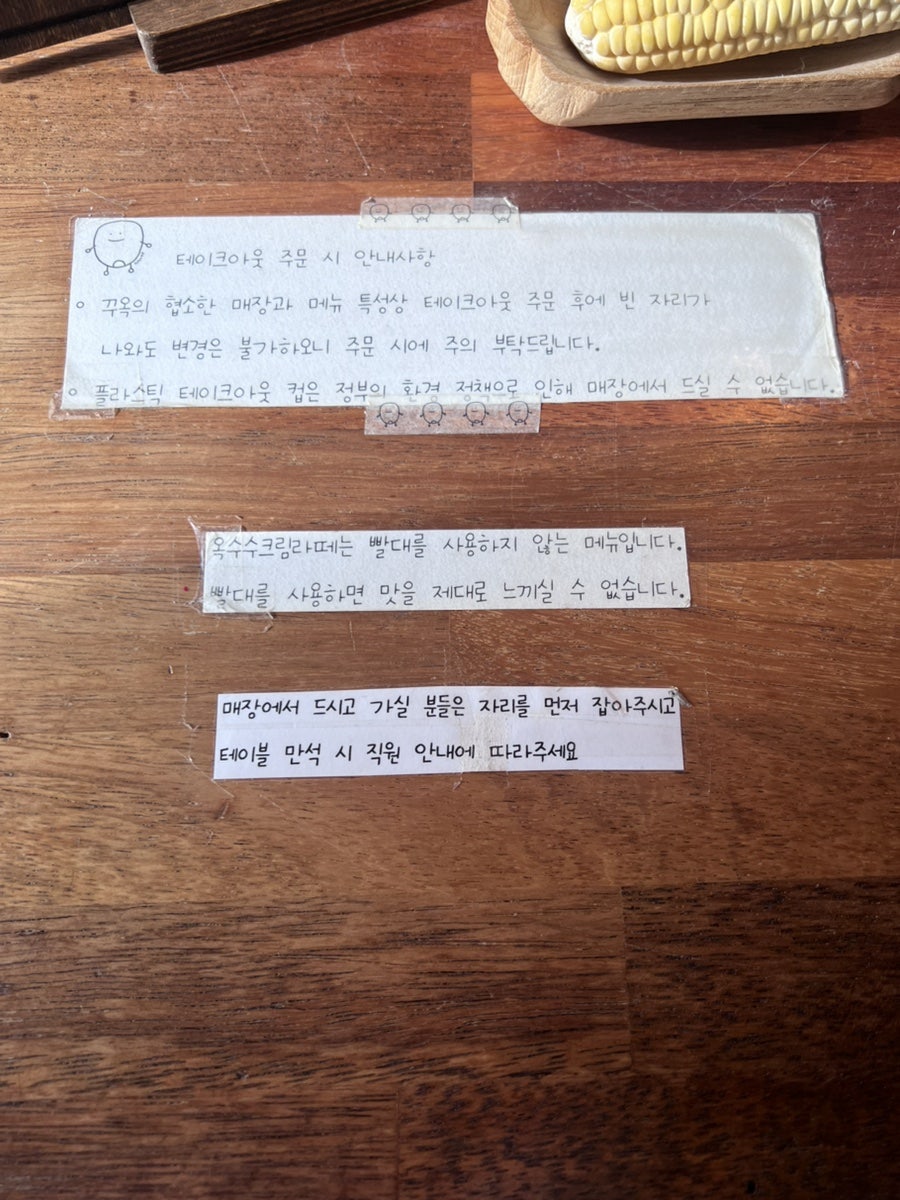 테이크아웃 주문 시 안내사항
꾸옥의 협소한 매장과 메뉴 특성상 테이크아웃 주문 후에 빈 자리가
나와도 변경은 불가하오니 주문 시에 주의 부탁드립니다.
플라스틱 테이크아웃 컵은 정부의 환경 정책으로 인해 매장에서 드실 수 없습니다.
옥수수크림라떼는 빨대를 사용하지 않는 메뉴입니다.
빨대를 사용하면 맛을 제대로 느끼실 수 없습니다.
매장에서 드시고 가실 분들은 자리를 먼저 잡아주시고
테이블 만석 시 직원 안내에 따라주세요